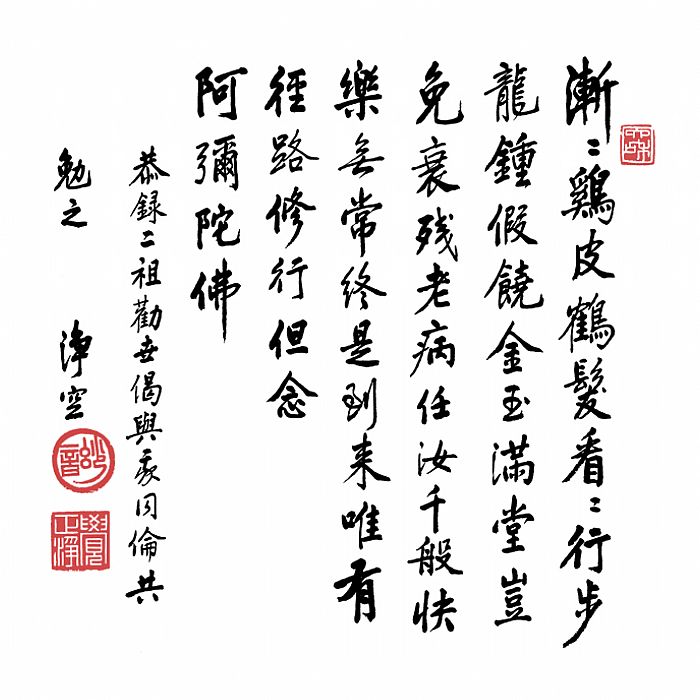 漸〻鷄皮鶴髮看〻行步
龍鍾假饒金玉滿堂豈
免衰残老病任汝千般快
樂無常終是到来唯有
徑路修行但念
阿彌陀佛
恭録二祖勸世偈與我同倫共
勉之 淨空
妙音
覺正淨